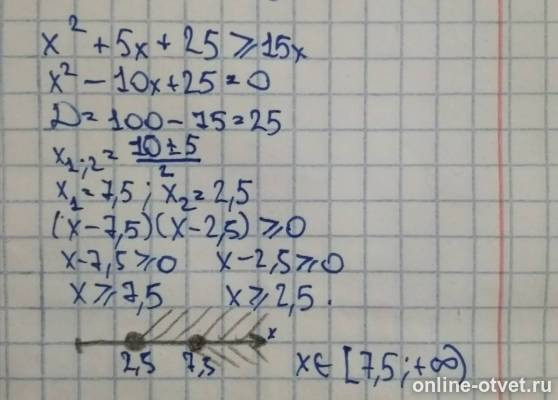 x² + 5x + 25 ⩾ 15x
x² - 10x + 25 = 0
D = 100 - 75 = 25
x₁;₂ = (10 ± 5)/2
x₁ = 7,5 ; x₂ = 2,5
(x - 7,5)(x - 2,5) ⩾ 0
x - 7,5 ⩾ 0 x - 2,5 ⩾ 0
x ⩾ 7,5 x ⩾ 2,5.
x
2,5 7,5 x ∈ [7,5 ; +∞)
online-otvet.ru